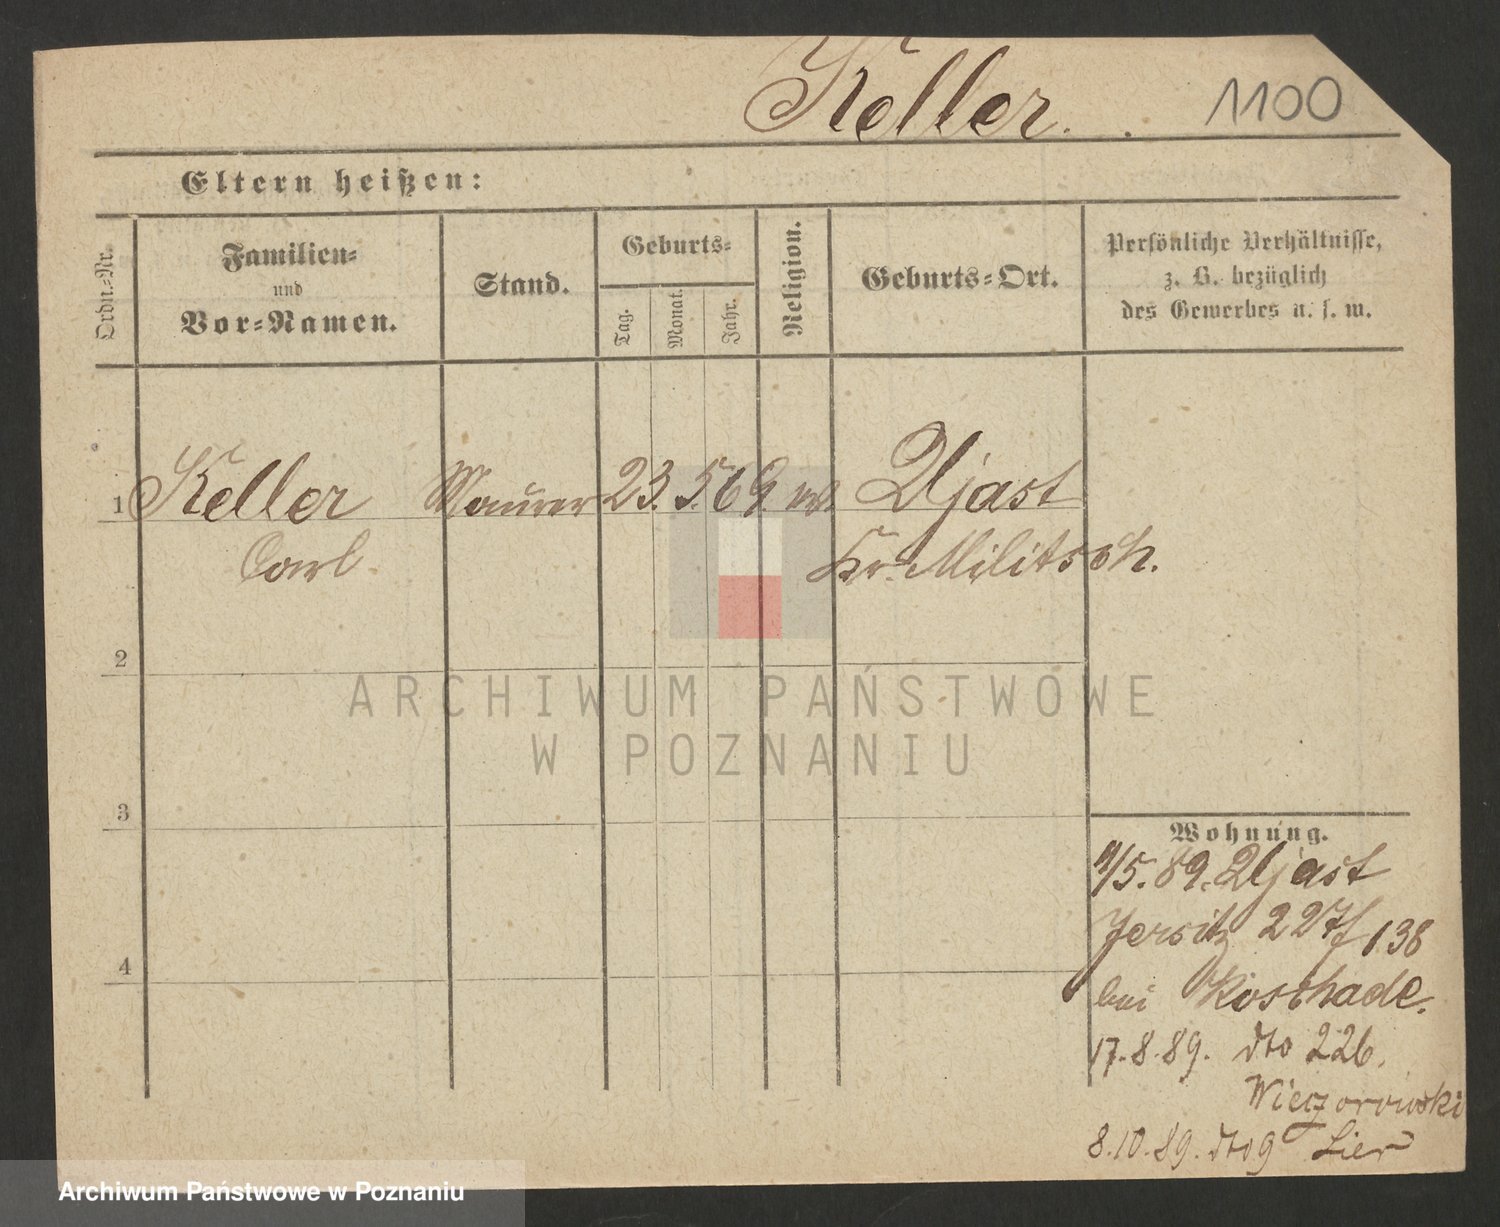 Keller.
1100
Eltern heißen:
Ordn.-Nr.
Familien-
und
Vor-Namen.
Stand.
Geburts-
Tag.
Monat.
Jahr.
Religion.
Geburts-Ort.
Persönliche Verhältnisse,
z. B. bezüglich
des Gewerbes u. s. w.
1 Keller Maurer 23. 5. 69. Ujast
Carl Kr. Militsch.
2
3
4
ARCHIWUM PAŃSTWOWE
W POZNANIU
Wohnung.
/5. 89. Ujast
Jersitz 138
bei Kosthade.
17. 8. 89. dto 226.
Wieczorowski
8. 10. 89. dto 9 Lier
Archiwum Państwowe w Poznaniu